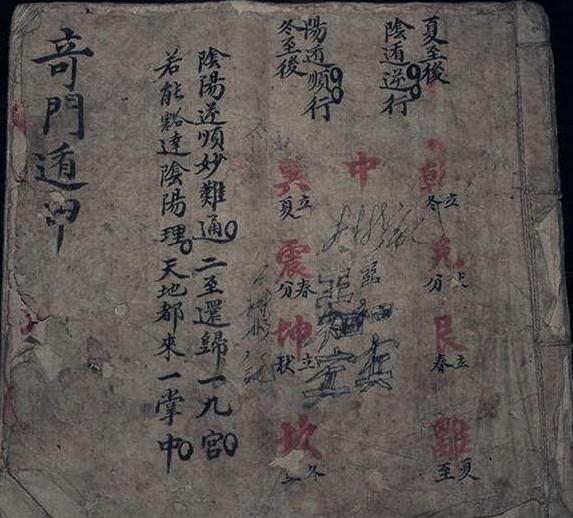 夏至後
陰遁逆行
陽遁順行
冬至後
乾
立冬
兌
分
艮
立春
離
夏至
中
巽
立夏
震
春分
坤
立秋
坎
冬
陰陽逆順妙難通。二至還歸一九宮。
若能豁達陰陽理。天地都來一掌中。
奇門遁甲